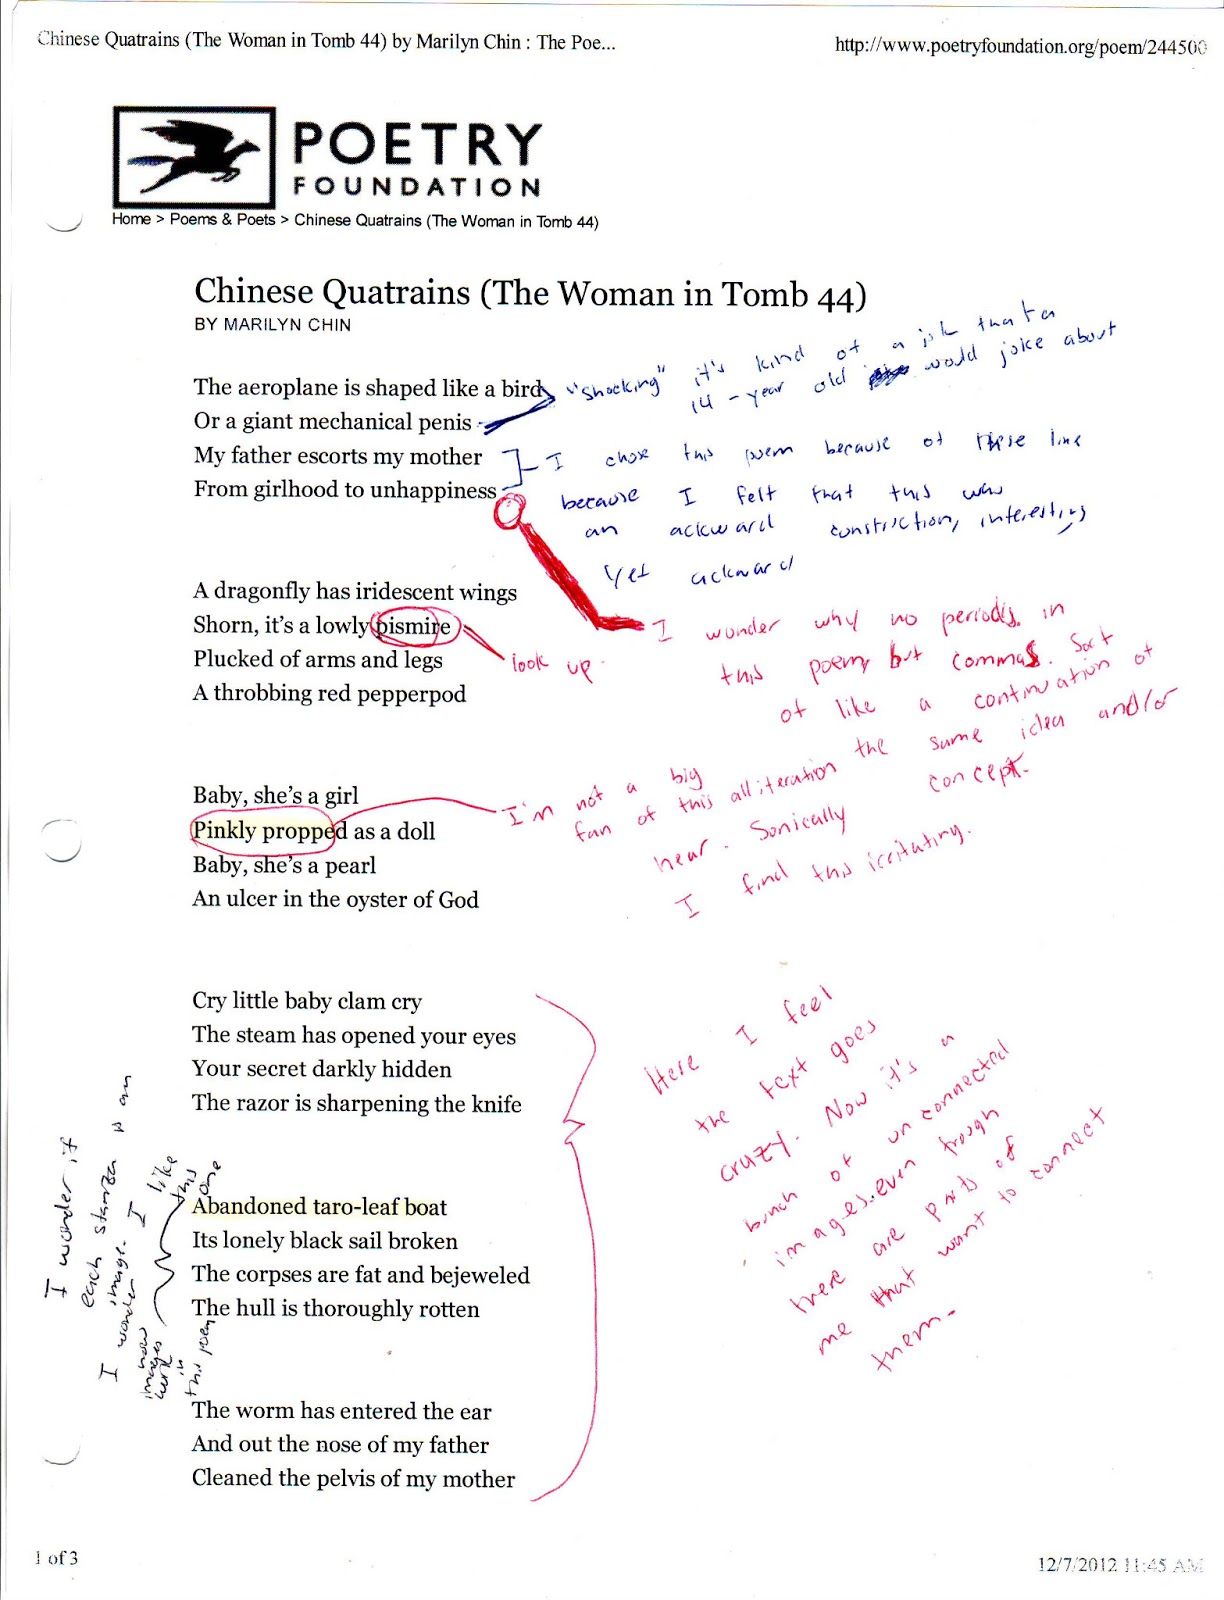 Chinese Quatrains (The Woman in Tomb 44) by Marilyn Chin : The Poe...
http://www.poetryfoundation.org/poem/244500
POETRY
FOUNDATION
Home > Poems & Poets > Chinese Quatrains (The Woman in Tomb 44)
Chinese Quatrains (The Woman in Tomb 44)
BY MARILYN CHIN
The aeroplane is shaped like a bird
Or a giant mechanical penis
My father escorts my mother
From girlhood to unhappiness
"shocking" it's kind of a jok that a
14-year old would joke about
I chose this poem because of these line
because I felt that this was
an ackward constrction, interesting
yet ackward
A dragonfly has iridescent wings
Shorn, it's a lowly pismire
Plucked of arms and legs
A throbbing red pepperpod
look up.
I wonder why no periods in
this poem, but commas. Sort
of like a continuation of
the same idea and/or
concept.
Baby, she's a girl
Pinkly propped as a doll
Baby, she's a pearl
An ulcer in the oyster of God
I'm not a big
fan of this alliteration
hear. Sonically
I find this irritating.
Cry little baby clam cry
The steam has opened your eyes
Your secret darkly hidden
The razor is sharpening the knife
Abandoned taro-leaf boat
Its lonely black sail broken
The corpses are fat and bejeweled
The hull is thoroughly rotten
The worm has entered the ear
And out the nose of my father
Cleaned the pelvis of my mother
Here I feel
the text goes
crazy. Now it's a
bunch of un connected
images. even trough
there are parts of
me that want to connect
them-
I wonder if
each stanza is an
image. I like
this
one
I wonder
how
images
work
in
this poem
1 of 3
12/7/2012 11:45 AM